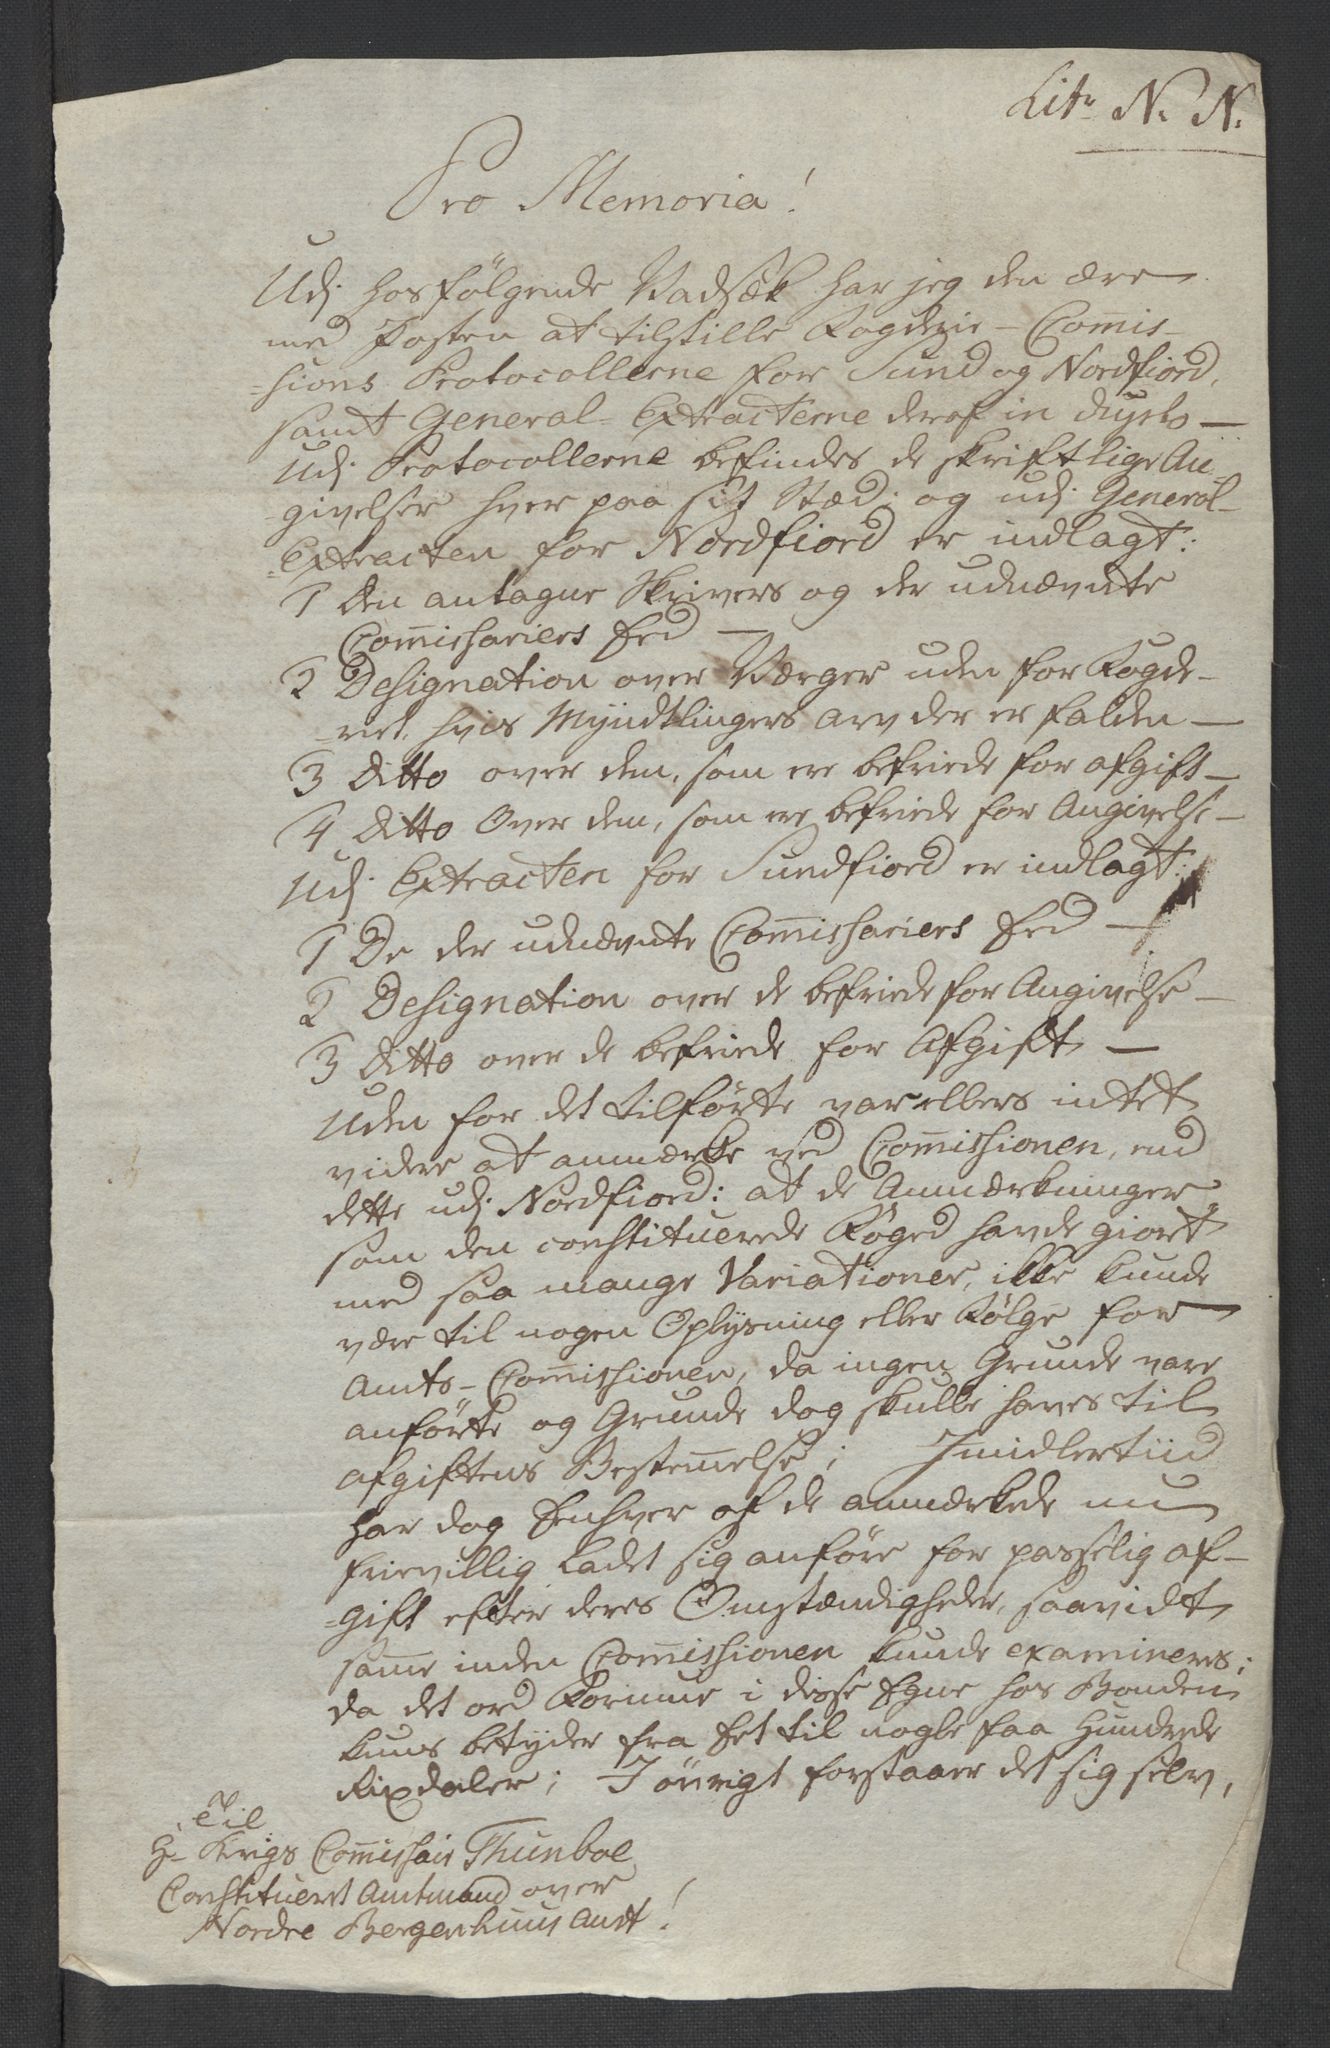 Litr N. N.
Pro Memoria!
Udj hosfølgende Vadsæk har jeg den ære
med Posten at tilstille Fogderie-Comis-
-sions Protocollerne for Sund og Nordfiord,
samt General-Extracterne deraf in duplo —
Udj Protocollerne befindes de skriftlige An-
-givelser hver paa sit Stæd; og udj General-
-Extracten for Nordfiord er indlagt:
1 Den antagne Skrivers og der udnævnte
Com̄issariers Eed —
2 Designation over Værger uden for Fogde-
-riet, hvis Myndtlingers arv der er falden —
3 Ditto over dem, som ere befriede for afgift —
4 Ditto over dem, som ere befriede for Angivelse —
Udj Extracten for Sundfiord er indlagt:
1 De der udnævnte Com̄issariers Eed —
2 Designation over de befriede for Angivelse —
3 Ditto over de befriede for Afgift —
Uden for det tilførte var ellers intet
videre at anmærke ved Com̄issionen, end
dette udj Nordfiord: at de Anmærkninger
som den constituerede Foged havde giort
med saa mange Variationer, ikke kunde
være til nogen Oplysning eller Følge for
Amts-Com̄issionen, da ingen Grunde vare
anførte og Grunde dog skulle haves til
afgiftens Bestem̄else; Imidlertiid
har dog Eenhver af de anmærkede nu
frievillig ladet sig anføre for passelig af-
-gift efter deres Omstændigheder, saavidt
sam̄e inden Com̄issionen kunde examineres;
da det ord Formue i disse Egne hos Bonden
kuns betyder fra Eet til nogle faa Hundrede
Rixdaler; I øvrigt forstaaer det sig selv,
Til
Hr Krigs Com̄issair Thunboe
Constitueret Amtmand over
Nordre Bergenhuus Amt!